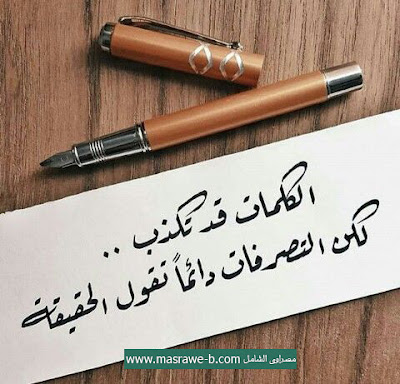 الكلمات قد تكذب ..
لكن التصرفات دائماً تقول الحقيقة
مصراوى الشامل www.masrawe-b.com